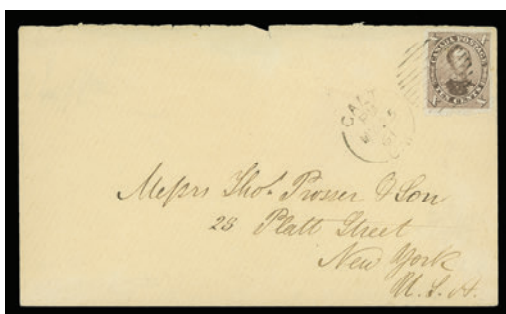 CANADA POSTAGE
TEN CENTS
Messrs Thos. Prosser & Son
28 Platt Street
New York
U.S.A.